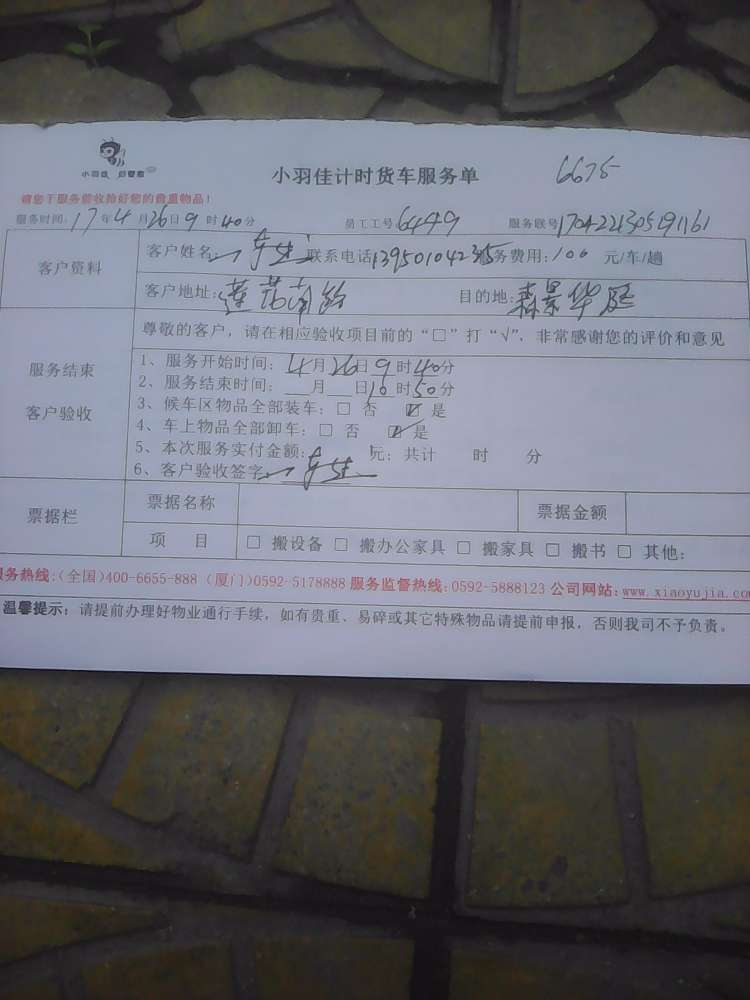 小羽佳 好管家
小羽佳计时货车服务单 6675
请您于服务前收拾好您的贵重物品！
服务时间：17年4月26日9时40分 员工工号6449 服务联号1704221305191161
客户资料
客户姓名 联系电话13950104235务费用：100 元/车/趟
客户地址：莲花南路 目的地：森景华庭
尊敬的客户，请在相应验收项目前的“□”打“√”，非常感谢您的评价和意见
服务结束
客户验收
1、服务开始时间：4月26日9时40分
2、服务结束时间：__月__日10时50分
3、候车区物品全部装车：□ 否 ☑ 是
4、车上物品全部卸车：□ 否 ☑ 是
5、本次服务实付金额： 元；共计 时 分
6、客户验收签字
票据栏
票据名称 票据金额
项 目 □ 搬设备 □ 搬办公家具 □ 搬家具 □ 搬书 □ 其他：
服务热线：(全国)400-6655-888 (厦门)0592-5178888 服务监督热线：0592-5888123 公司网站：www.xiaoyujia.com
温馨提示：请提前办理好物业通行手续，如有贵重、易碎或其它特殊物品请提前申报，否则我司不予负责。